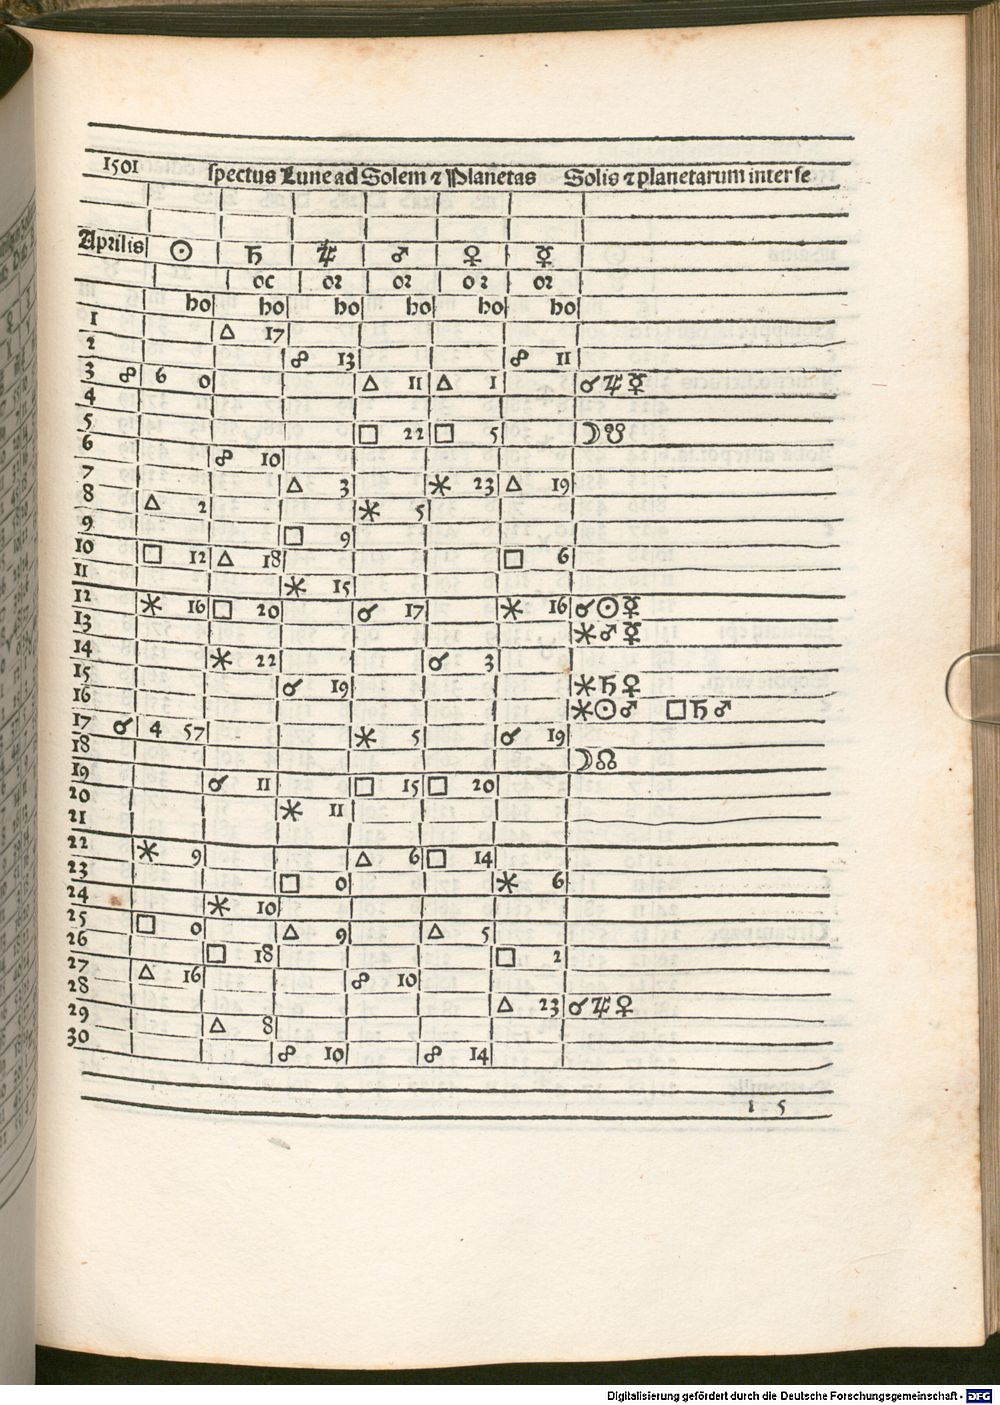 1501 spectus Lune ad Solem ⁊ Planetas Solis ⁊ planetarum inter se
Aprilis ☉ ♄ ♃ ♂ ♀ ☿
oc oꝛ oꝛ oꝛ oꝛ
ho ho ho ho ho ho
1 △ 17
2 ☍ 13 ☍ 11
3 ☍ 6 0 △ 11 △ 1 ☌ ♃ ☿
4
5 □ 22 □ 5 ☽ ☋
6 ☍ 10
7 △ 3 ✶ 23 △ 19
8 △ 2 ✶ 5
9 □ 9
10 □ 12 △ 18 □ 6
11 ✶ 15
12 ✶ 16 □ 20 ☌ 17 ✶ 16 ☌ ☉ ☿
13 ✶ ♂ ☿
14 ✶ 22 ☌ 3
15 ☌ 19 ✶ ♄ ♀
16 ✶ ☉ ♂ □ ♄ ♂
17 ☌ 4 57 ✶ 5 ☌ 19
18 ☽ ☊
19 ☌ 11 □ 15 □ 20
20 ✶ 11
21
22 ✶ 9 △ 6 □ 14
23 □ 0 ✶ 6
24 ✶ 10
25 □ 0 △ 9 △ 5
26 □ 18 □ 2
27 △ 16 ☍ 10
28 △ 23 ☌ ♃ ♀
29 △ 8
30 ☍ 10 ☍ 14
1 5
Digitalisierung gefördert durch die Deutsche Forschungsgemeinschaft - DFG